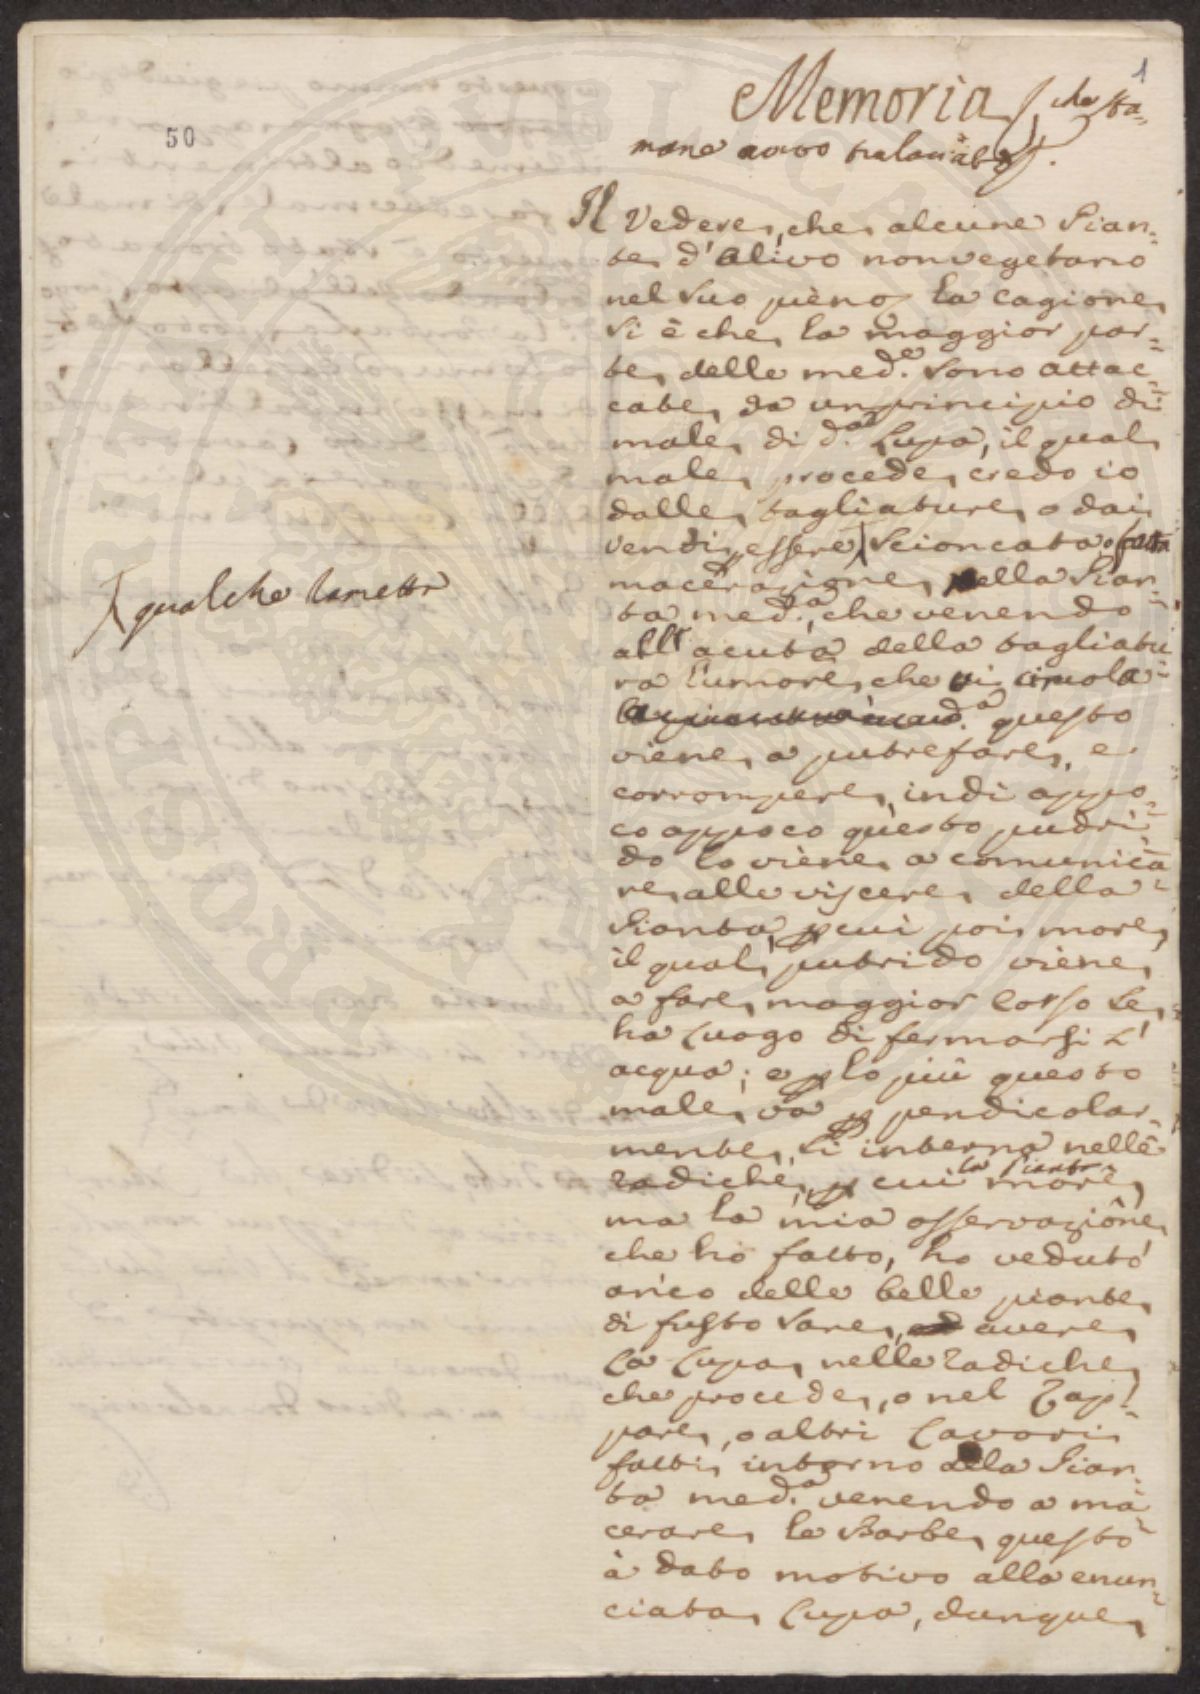 1
50
Memoria che sta=
mane avevo tralasciato.
Il Vedere, che alcune Pian=
te d'Alivo non vegetano
nel suo pieno, la cagione
si è che la maggior par=
te delle med.e sono attac=
cate da un principio di
male, di d.a Lupa, il qual
male procede, credo io
dalle tagliature, o dai
venti, essere scioncata, o fatta
qualche rametta
macerazione nella Pian=
ta med.a che venendo
all' acuta della tagliatu
ra l'umore, che vi circola
questo
viene a putrefare, e
corrompere, indi appo=
co appoco questo pudri=
do lo viene a comunica
re alle viscere della
Pianta, p cui poi more,
il qual putrido viene
a fare maggior corso se
ha luogo di fermarsi l'
acqua; e p lo più questo
male va p pendicolar=
mente, si interna nelle
radiche, p cui la Pianta more,
ma la mia osservazione
che ho fatto, ho veduto
anco delle belle piante
di fusto sane, avere
la Lupa nelle radiche
che procede, o nel Zap=
pare, o altri lavori
fatti intorno alla Pian=
ta med.a venendo a ma=
cerare le Barbe, questo
à dato motivo alla enun=
ciata Lupa, dunque